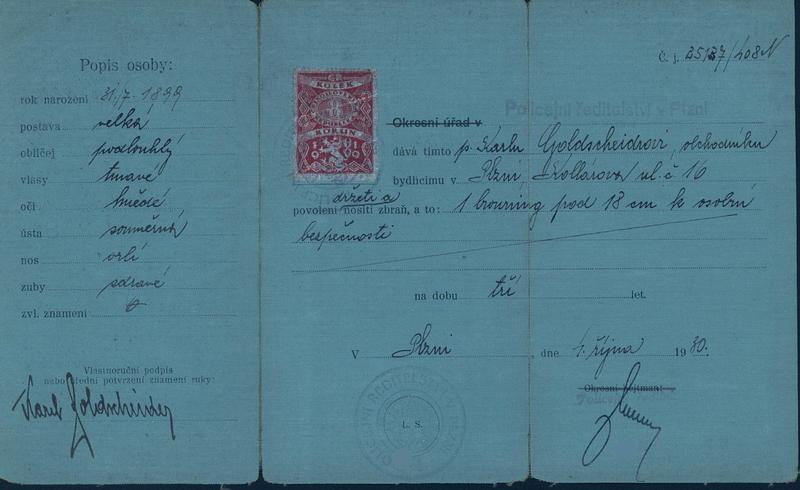 Popis osoby:
rok narození 31./7. 1899
postava velká
obličej podlouhlý
vlasy tmavé
oči hnědé
ústa souměrná
nos orlí
zuby zdravé
zvl. znamení
Vlastnoruční podpis
nebo úřední potvrzení znamení ruky:
Karel Goldscheider
KOLEK
KORUN
Č. j. 35137/408 N
Policejní ředitelství v Plzni
Okresní úřad v
dává tímto p. Karlu Goldscheidrovi, obchodníku
bydlícímu v Plzni, Kollárova ul. č 16
držeti a
povolení nositi zbraň, a to: 1 browning pod 18 cm k osobní
bezpečnosti
na dobu tří let.
V Plzni, dne 1. října 1930.
Okresní hejtman:
L. S.